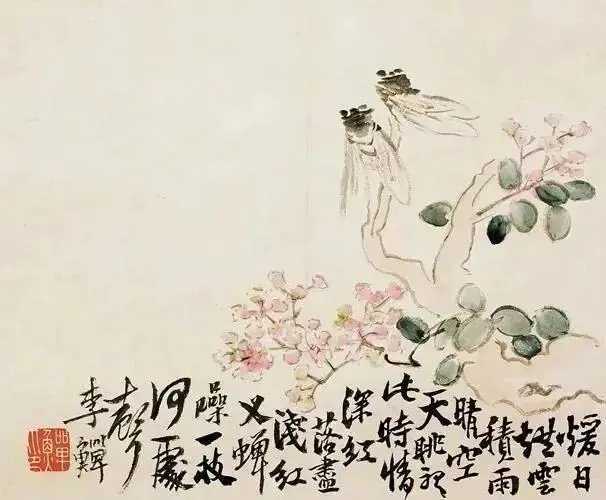 煖日
雲
積雨
晴空
天眺
此時情
深紅
落盡
淺紅
又蟬
噪一枝
何處
聲
李鱓